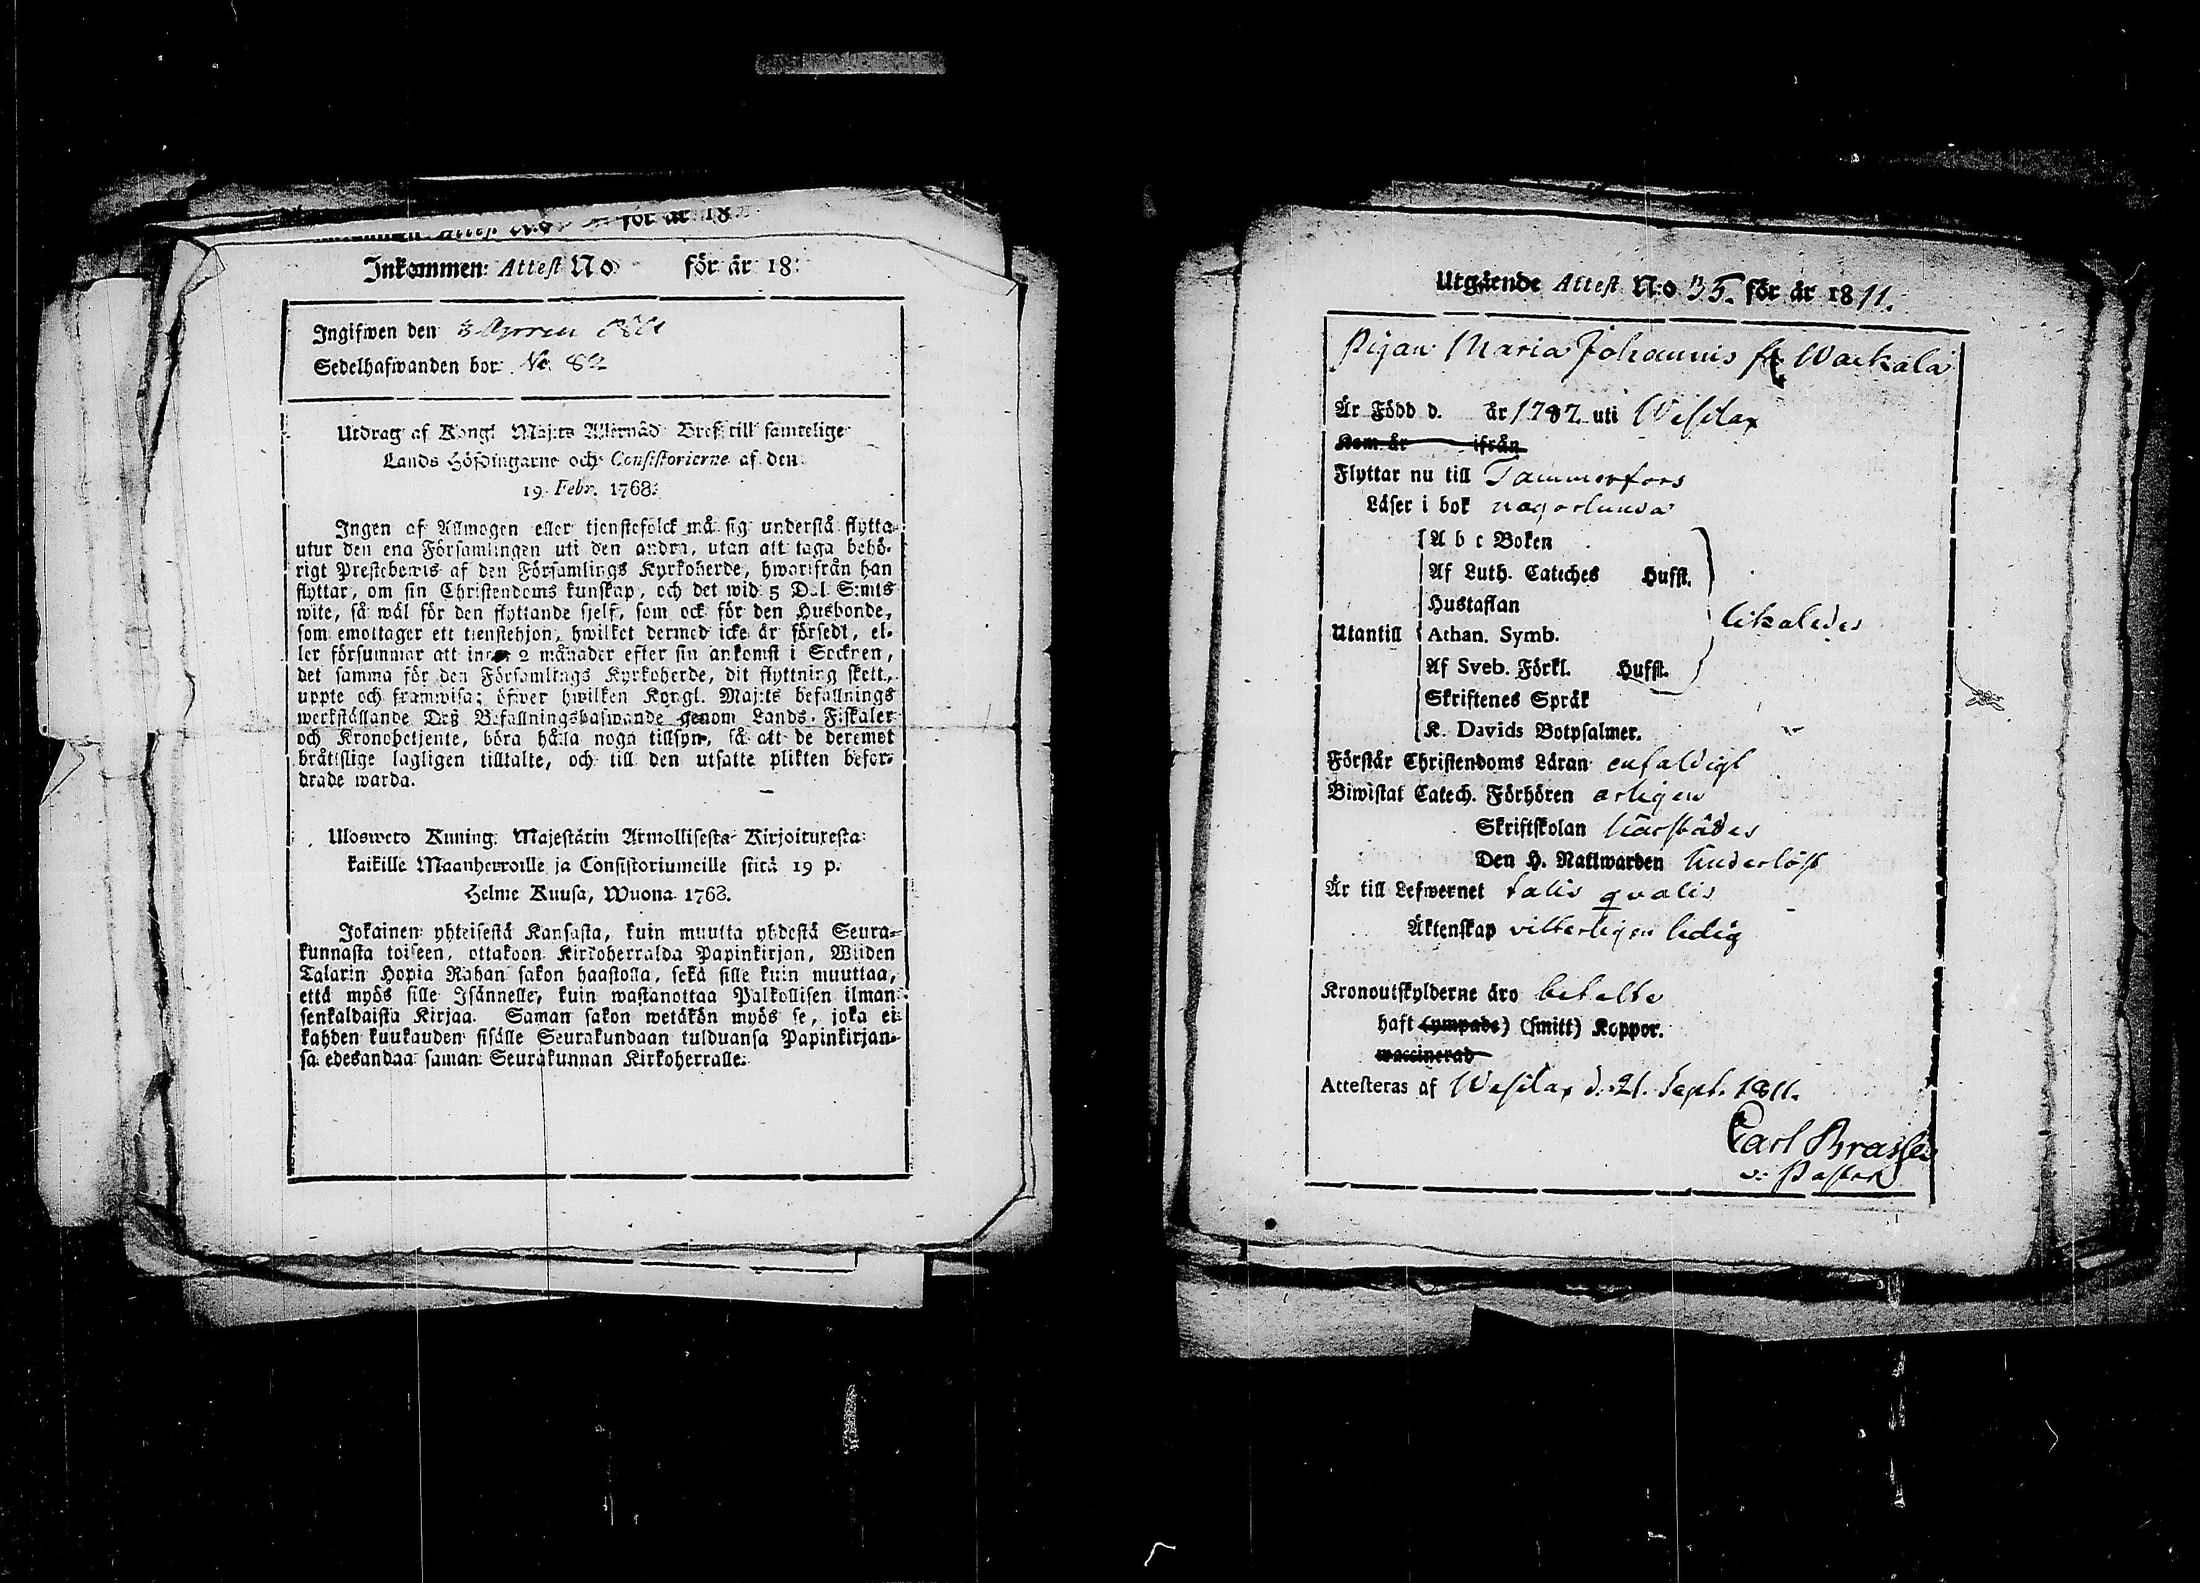 för år 18
Inkommen: Attest No för år 18
Ingifwen den 3 
Sedelhafwanden bor No 82
Utdrag af Kongl Maj:ts Allernåd Bref till samtelige
Lands Höfdingarne och Consistorierne af den
19 Febr. 1768:
Ingen af Allmogen eller tienstefolck må sig understå flytta
utur den ena Församlingen uti den andra, utan att taga behö-
rigt Prestebewis af den Församlings Kyrkoherde, hwarifrån han
flyttar, om sin Christendoms kunskap, och det wid 5 Dal S:mts
wite, så wäl för den flyttande sjelf, som ock för den Husbonde,
som emottager ett tienstehjon, hwilket dermed icke är försedt, el-
ler försummar att innan 2 månader efter sin ankomst i Socknen,
det samma för den Församlings Kyrkoherde, dit flyttning skett,
uppte och framwisa; öfwer hwilken Kongl. Maj:ts befallnings
werkställande Deß Befallningshafwande genom Lands-Fiskaler
och Kronobetjente, böra hålla noga tillsyn, så att de deremot
bråttslige lagligen tilltalte, och till den utsatte plikten befor-
drade warda.
Ulosweto Kuning. Majestätin Armollisesta Kirjoituxesta
kaikille Maanherroille ja Consistoriumeille siitä 19 p.
Helme Kuusa, Wuona 1768.
Jokainen yhteisestä Kansasta, kuin muutta yhdestä Seura-
kunnasta toiseen, ottakoon Kirkoherralda Papinkirjan, Wiiden
Talarin Hopia Rahan sakon haastolla, sekä sille kuin muuttaa,
että myös sille Isännelle, kuin wastanottaa Palkollisen ilman
senkaldaista Kirjaa. Saman sakon wetäkön myös se, joka ei
kahden kuukauden sisälle Seurakundaan tulduansa Papinkirjan-
sa edesandaa saman Seurakunnan Kirkoherralle.
Utgående Attest N:o 35. för år 1811.
Pigan Maria Johannis fr Wackala
Är Född d. år 1787 uti Wesilax
Kom år ifrån
Flyttar nu till Tammerfors
Läser i bok någorlunda
A b c Boken
Af Luth. Cateches Hufst.
Hustaflan
likaledes
Utantill Athan. Symb.
Af Sveb. Förkl. Hufst.
Skriftenes Språk
K. Davids Botpsalmer.
Förstår Christendoms Läran enfaldigt
Biwistat Catech. Förhören årligen
Skriftskolan
Den H. Nattwarden
Är till Lefwernet talis qualis
Äktenskap vitterligen ledig
Kronoutskylderne äro betalte
haft (ympade) (smitt) Koppor.
waccinerad
Attesteras af Wesilax d. 21. Sept. 1811.
Carl
v: Pastor